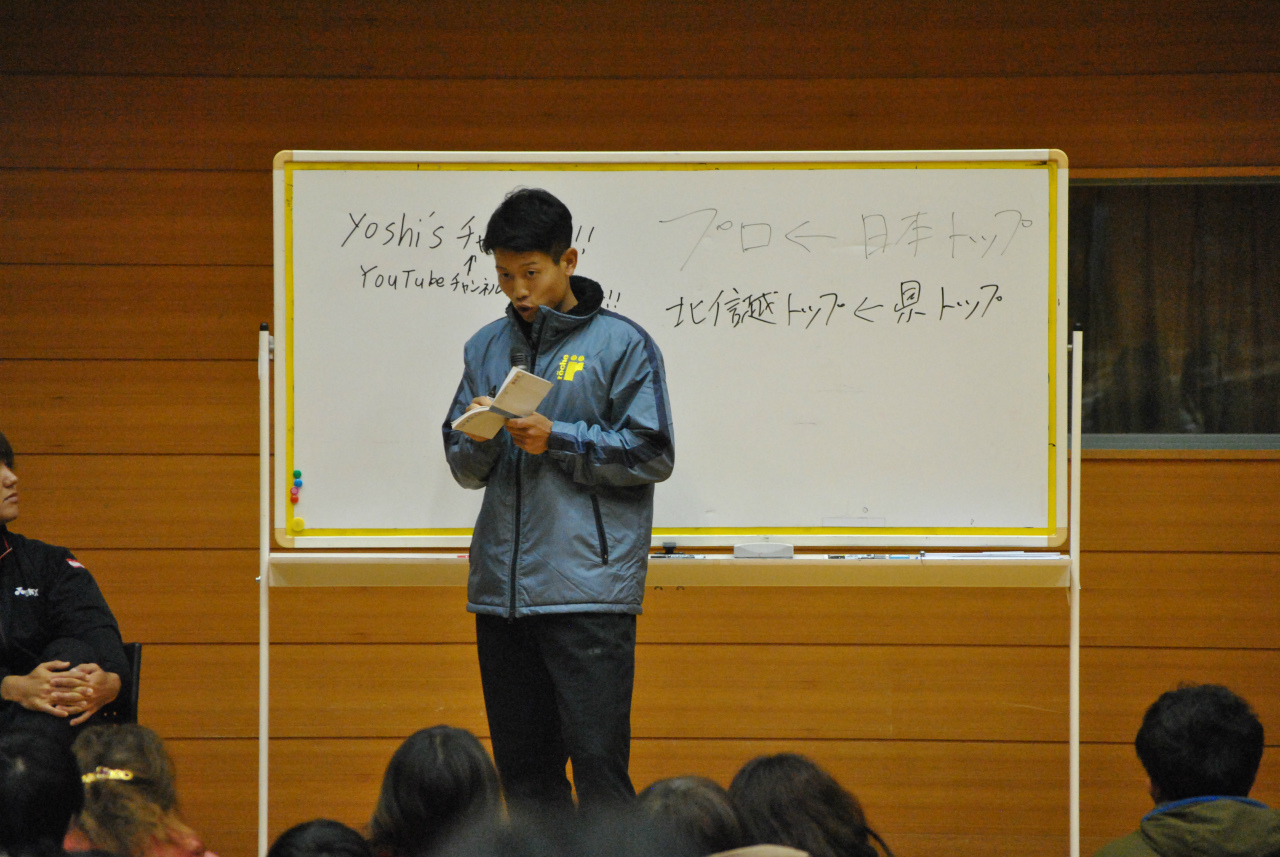 Yoshi's チャ !!
↑
YouTubeチャンネル !!
プロ ← 日本トップ
北信越トップ ← 県トップ